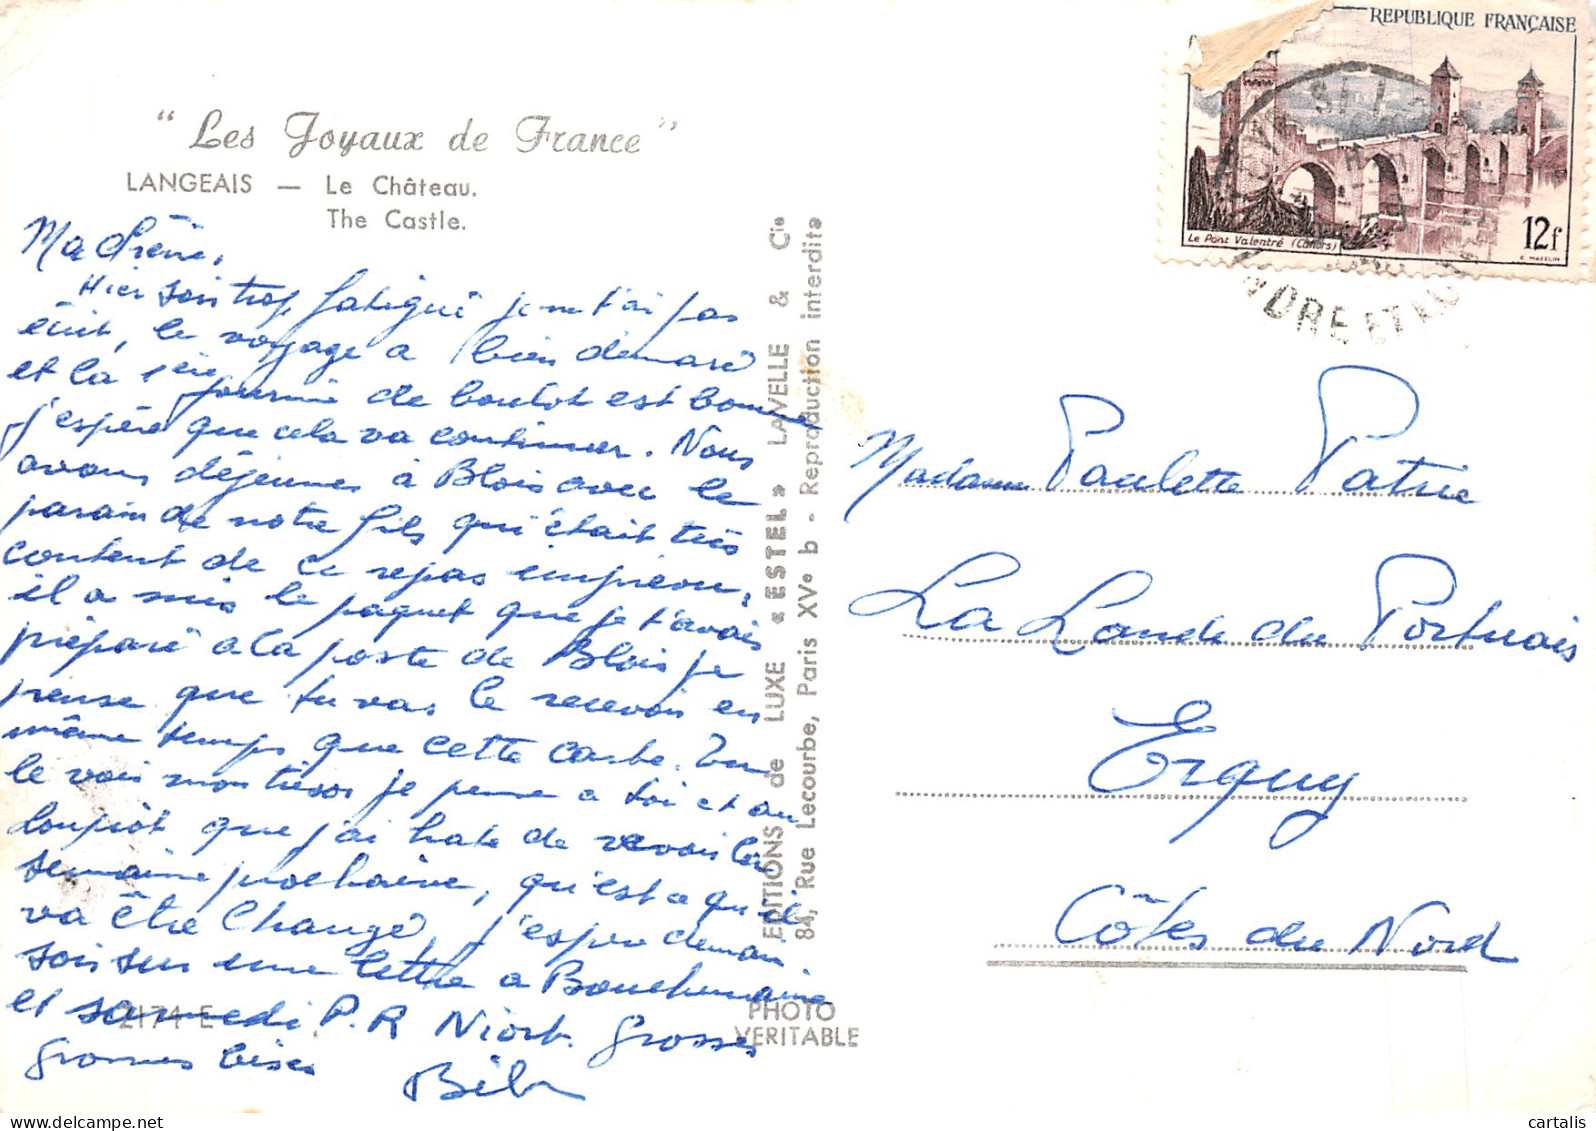 "Les Joyaux de France"
LANGEAIS — Le Château.
The Castle.
Ma
Hier soir trop fatigué je ne t'ai pas
écrit, le voyage a bien démaré
et la 1ère journée de boulot est bonne
j'espère que cela va continuer. Nous
avons déjeunes à Blois avec le
parain de notre fils qui était très
content de ce repas imprévu,
il a mis le paquet que je t'avais
préparé a la poste de Blois je
pense que tu vas le recevoir en
même temps que cette carte. Tu
le vois mon trésor je pense a toi et au
loupiot que j'ai hate de revoir la
semaine prochaine, qu'est ce qu'il
va être changé, j'espère demain
soir sur une lettre a
et samedi P.R Niort. Grosses
grosses bises
2174 E
EDITIONS de LUXE « ESTEL » LAVELLE & Cie
84, Rue Lecourbe, Paris XVe b - Reproduction interdite
PHOTO
VERITABLE
REPUBLIQUE FRANÇAISE
Le Pont Valentré (Cahors)
12f
C. MAZELIN
INDRE ET LOIRE
Madame Paulette Patrie
La Lande du Portuais
Erquy
Côtes du Nord
cartalis